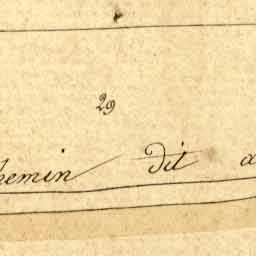 29
hemin dit